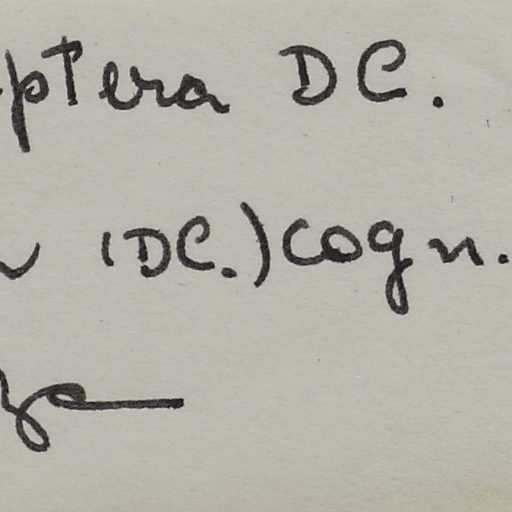 ptera DC.
(DC.) Cogn.